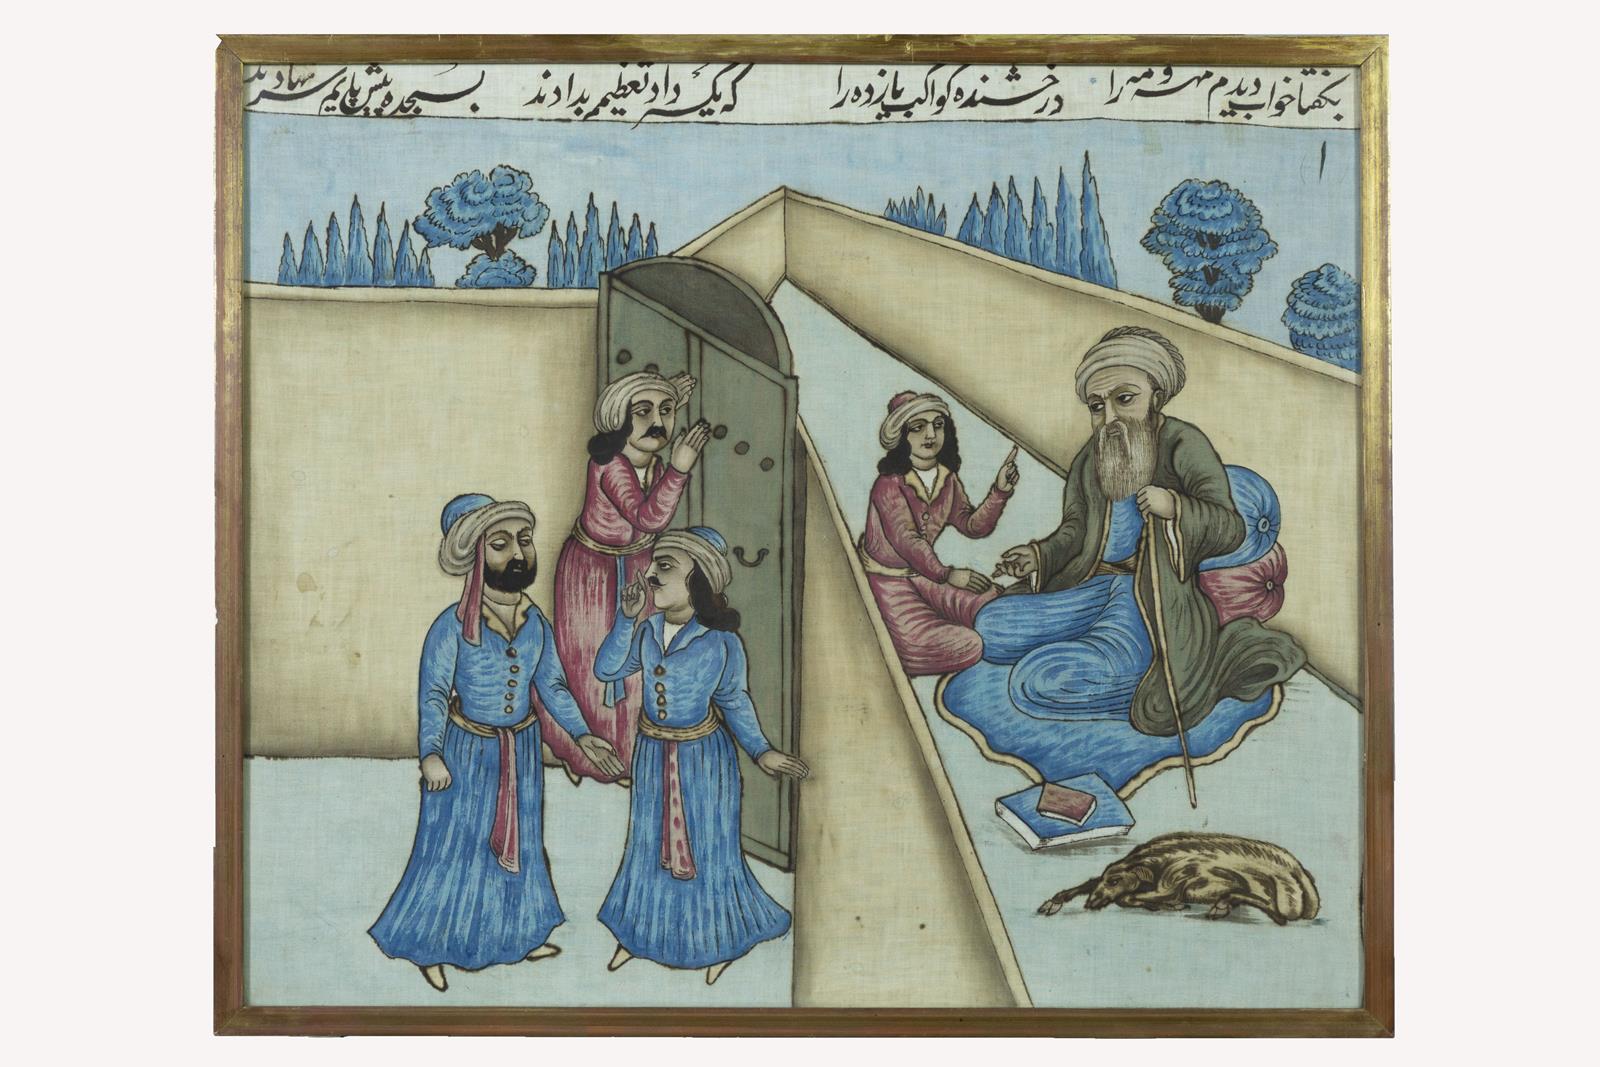 بگفتا خواب دیدم مهر و مه را درخشنده کواکب یازده را که یکسر داد تعظیمم بدادند بسجده پیش پایم سر نهادند
۱